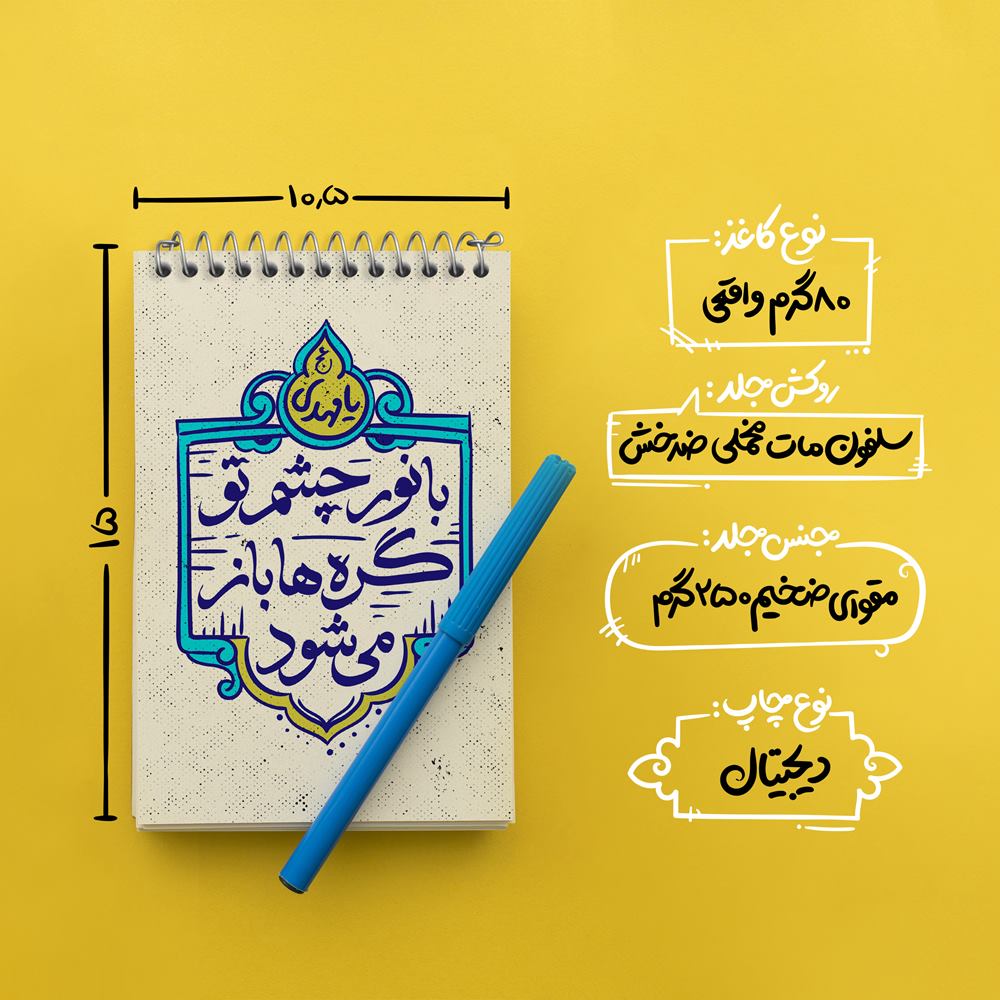 ۱۰٫۵
۱۵
عج
یا مهدی
با نور چشم تو
گره ها باز
می شود
نوع کاغذ:
۸۰ گرم واقعی
روکش جلد:
سلفون مات مخملی ضدخش
جنس جلد:
مقوای ضخیم ۲۵۰ گرم
نوع چاپ:
دیجیتال